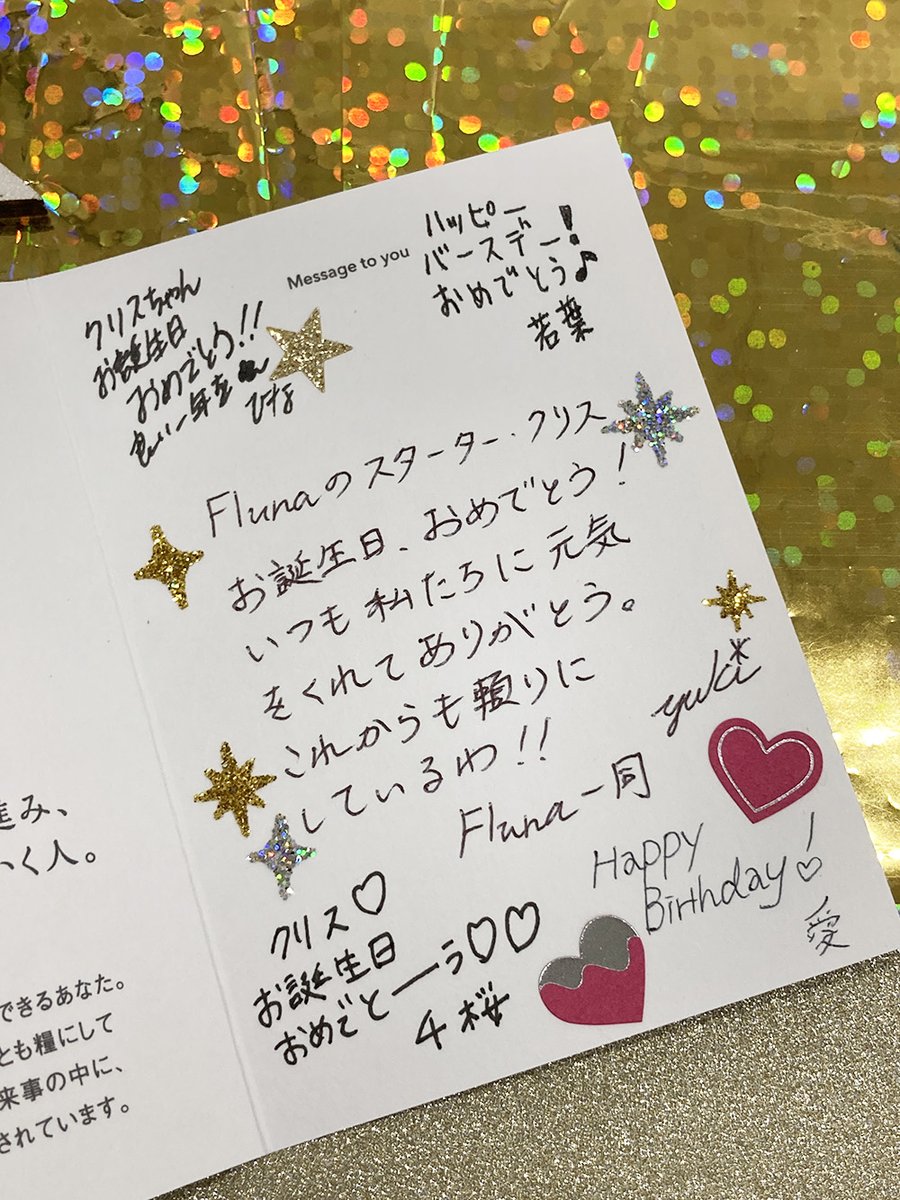 Message to you
クリスちゃん
お誕生日
おめでとう!!
良い一年を
ひな
ハッピー
バースデー!
おめでとう♪
若葉
Flunaのスターター・クリス
お誕生日、おめでとう!
いつも私たちに元気
をくれてありがとう。
これからも頼りに
しているわ!!
Fluna一同
yuki
クリス♡
お誕生日
おめでとーう♡♡
千桜
Happy
Birthday!♡
愛
進み、
いく人。
できるあなた。
とも糧にして
来事の中に、
されています。